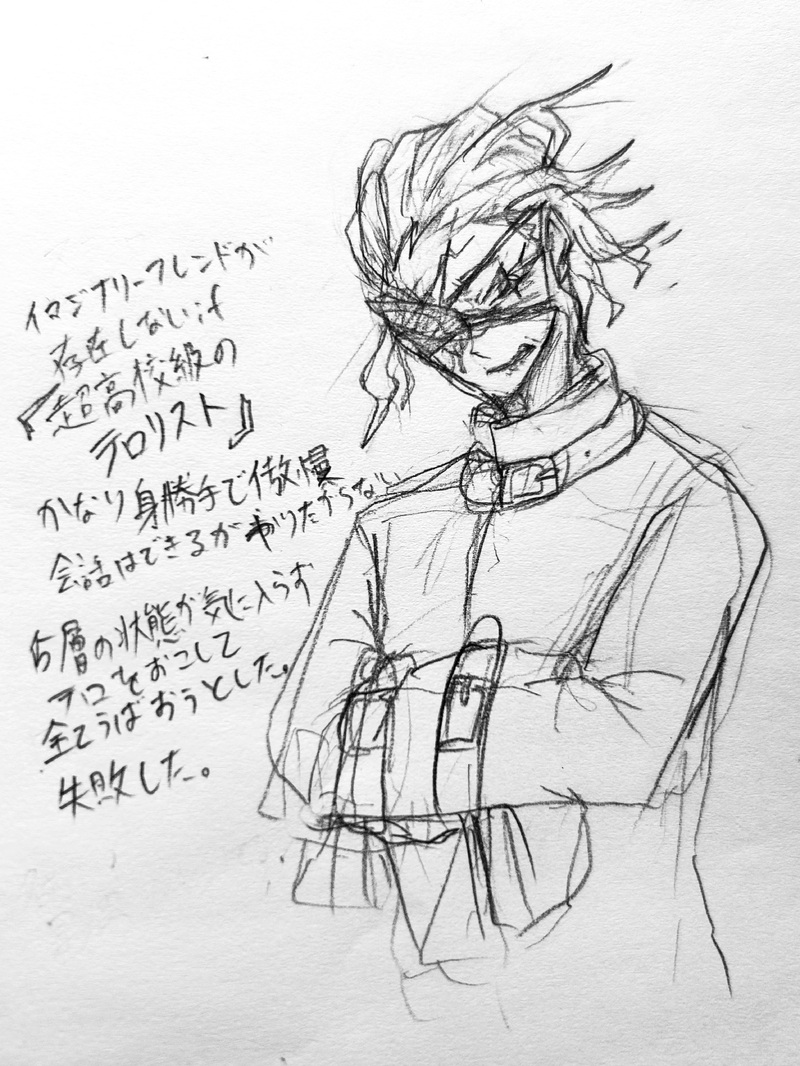 イマジナリーフレンドが
存在しないif
『超高校級の
テロリスト』
かなり身勝手で傲慢
会話はできるが わりたがらない
5層の状態が気に入らず
テロをおこして
全てうばおうとした。
失敗した。